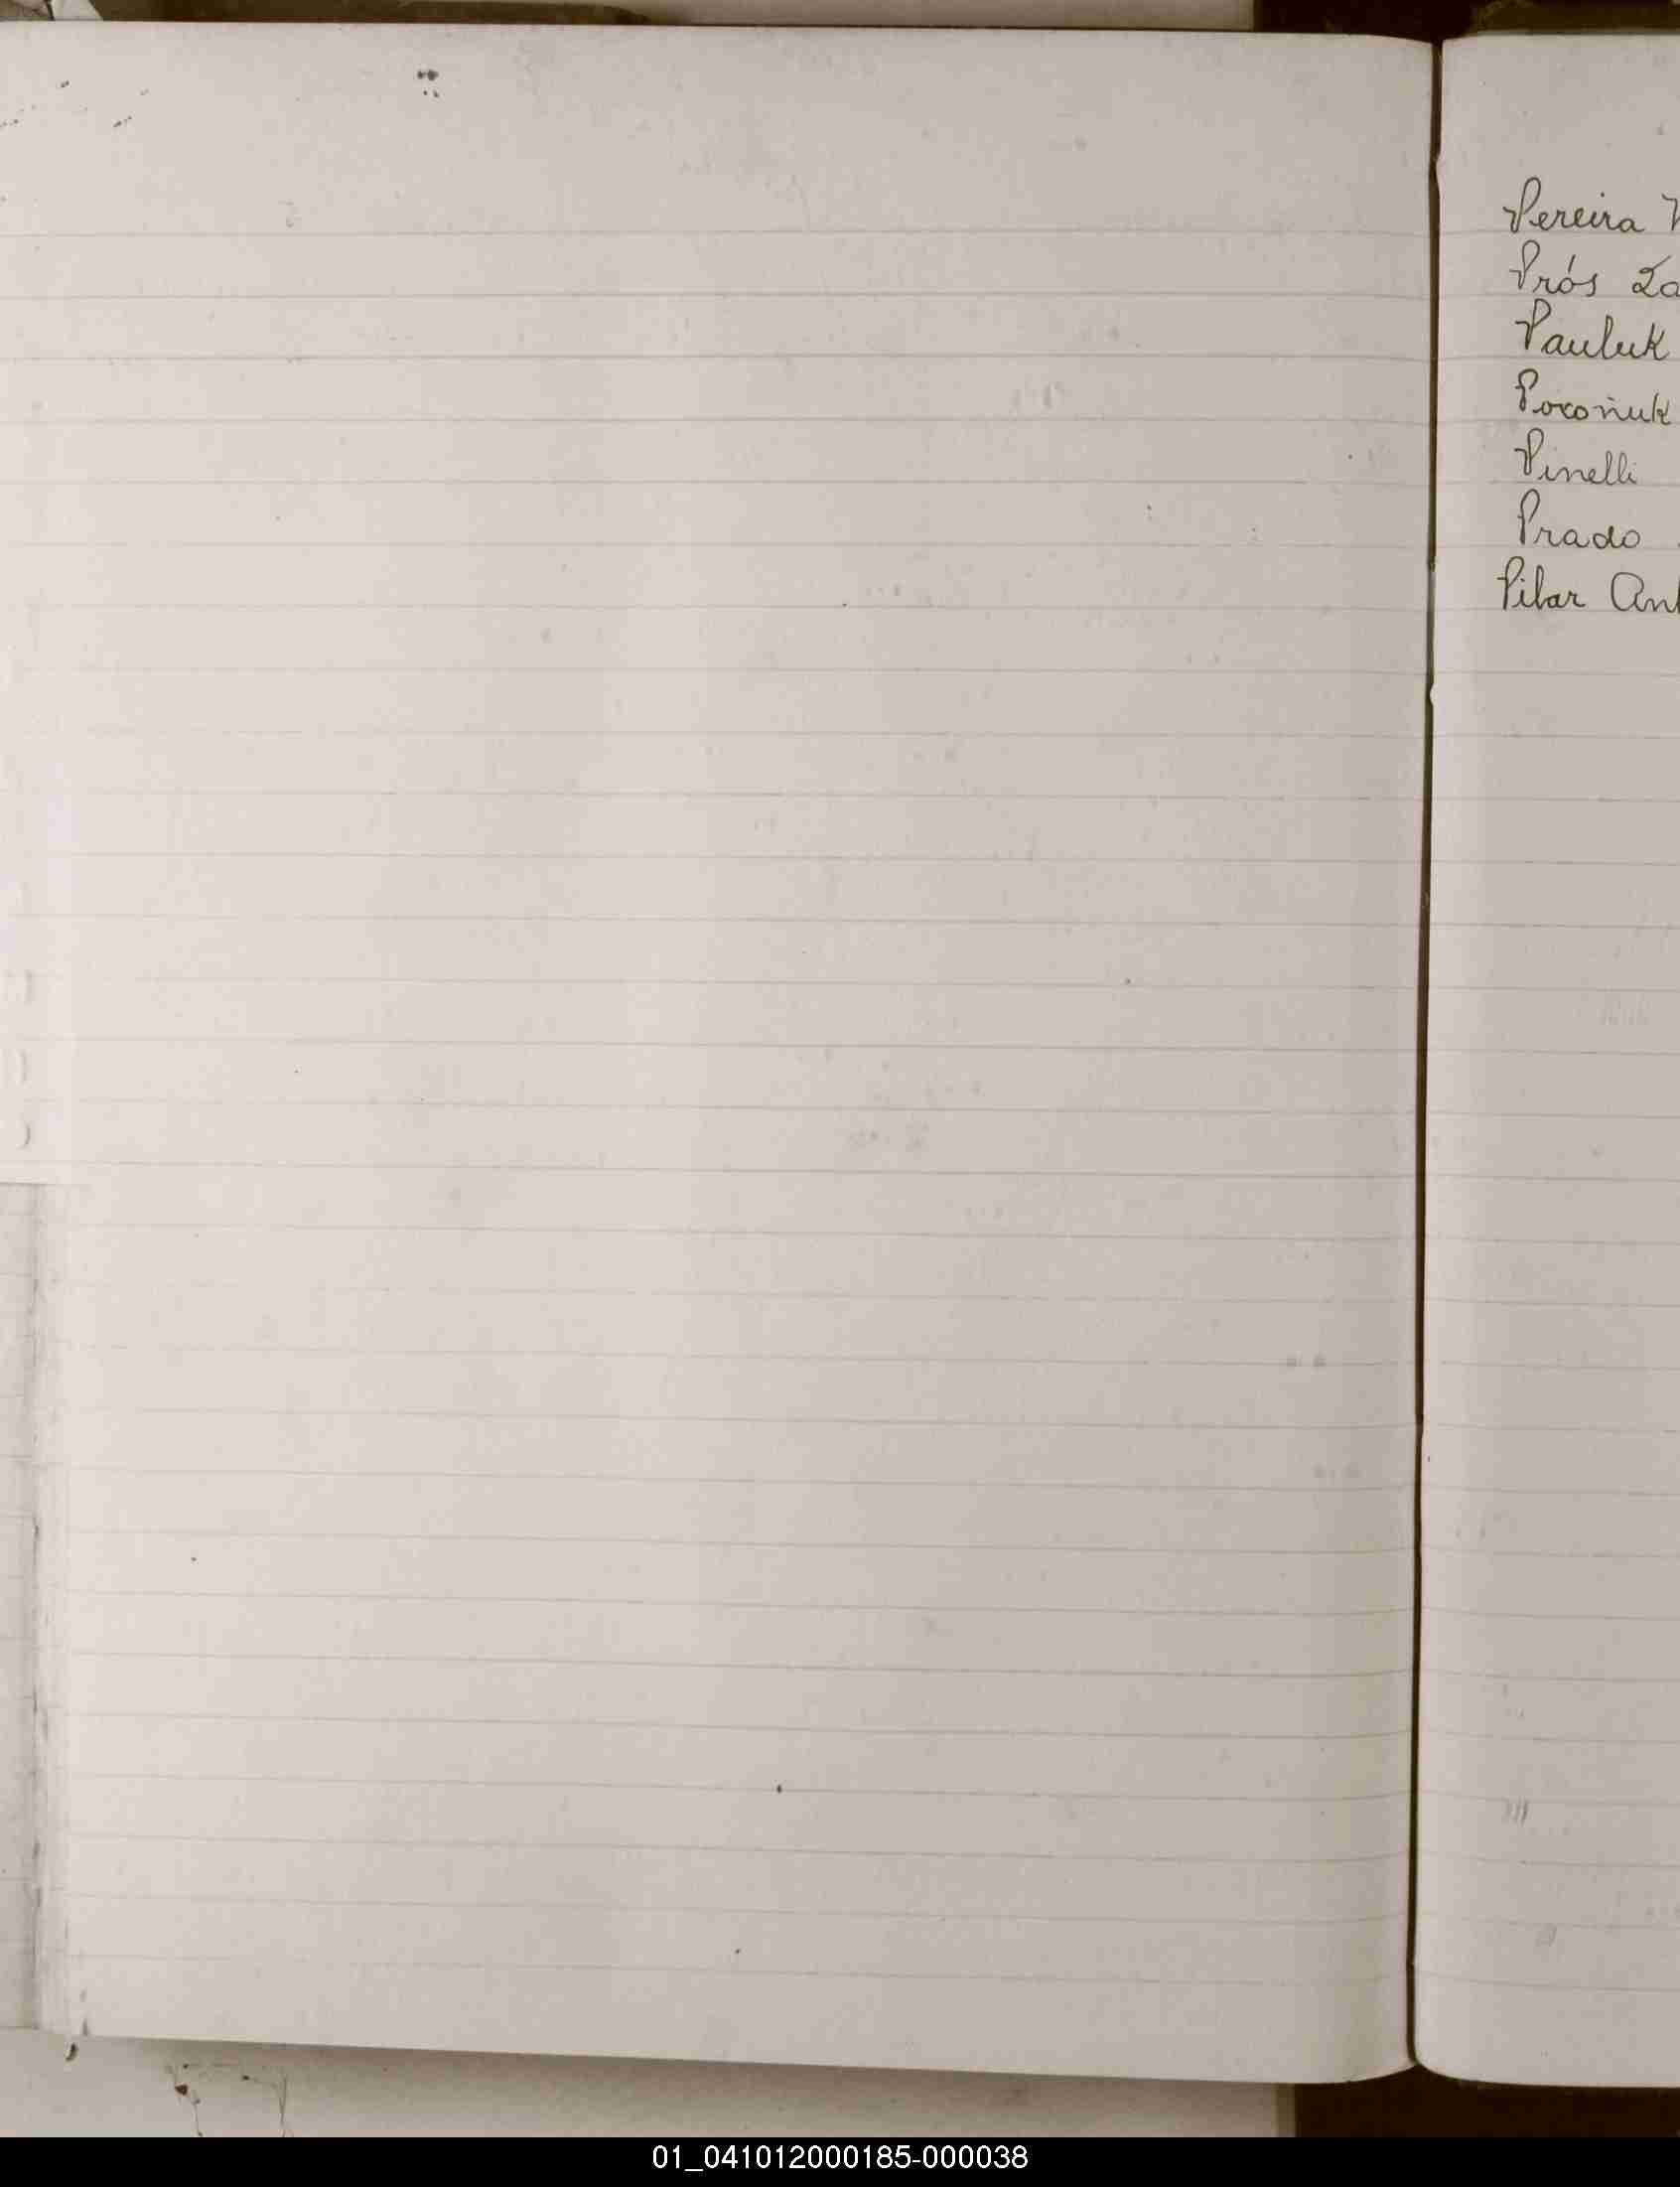 Pereira
Prós
Pauluk
Poroñuk
Pinelli
Prado
Pilar Ant
01_041012000185-000038